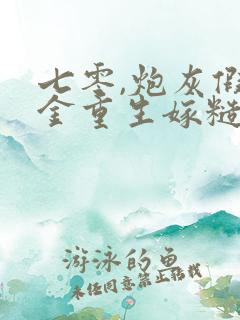 七零,炮灰假
金重生嫁糙
游泳的鱼
未经同意禁止转载